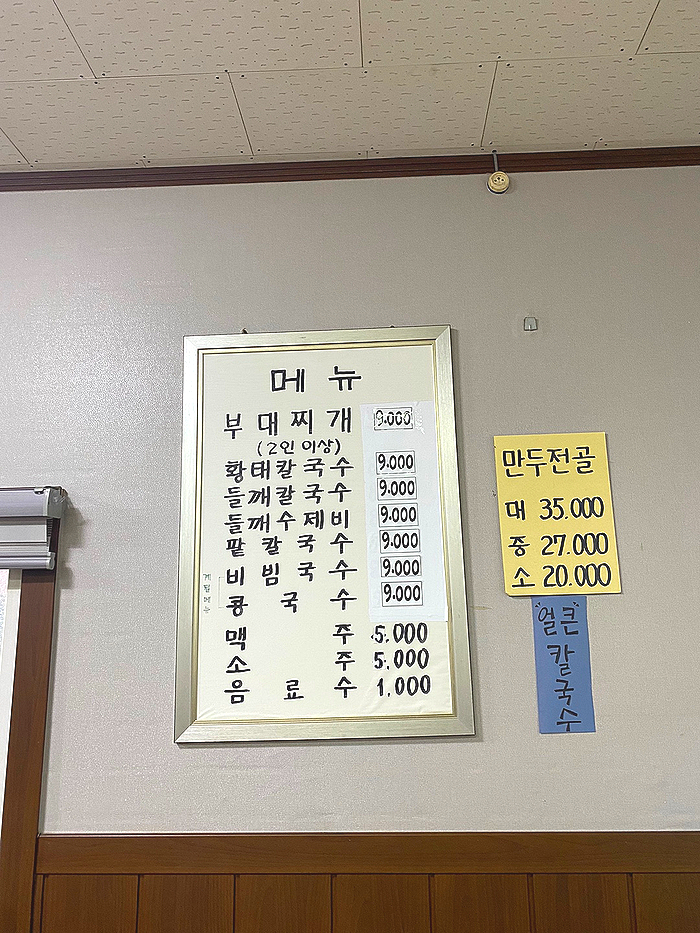 메뉴
부대찌개 9.000
(2인 이상)
황태칼국수 9.000
들깨칼국수 9.000
들깨수제비 9.000
팥칼국수 9.000
비빔국수 9.000
콩국수 9.000
계절메뉴
맥주 5.000
소주 5.000
음료수 1,000
만두전골
대 35.000
중 27.000
소 20.000
"얼큰"
칼국수